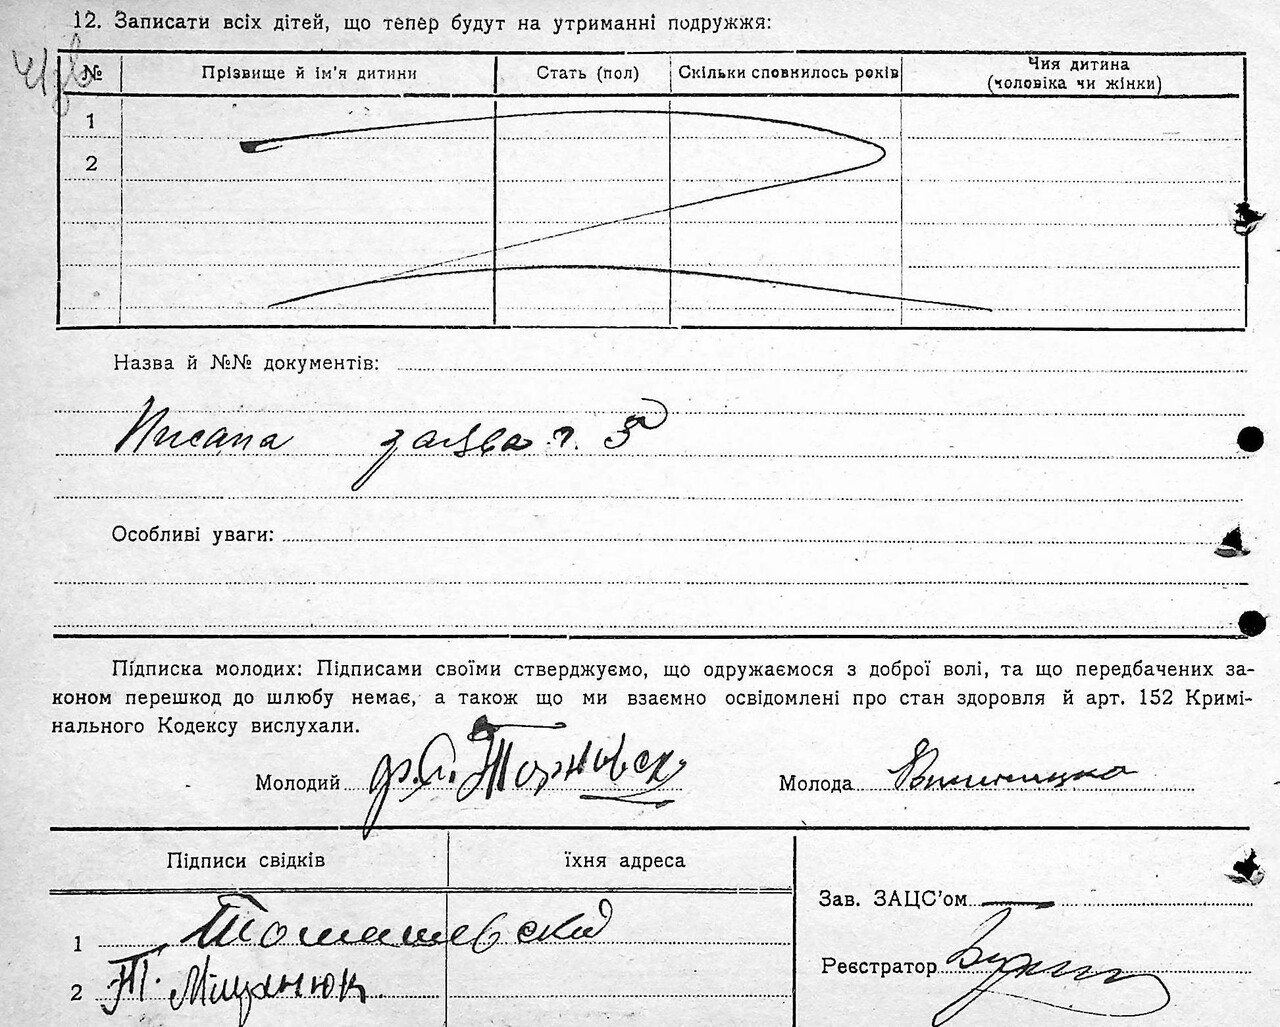 12. Записати всіх дітей, що тепер будут на утриманні подружжя:
№ Прізвище й ім'я дитини Стать (пол) Скільки сповнилось років Чия дитина
(чоловіка чи жінки)
1
2
Назва й №№ документів:
Писана заява
Особливі уваги:
Підписка молодих: Підписами своїми стверджуємо, що одружаємося з доброї волі, та що передбачених за-
коном перешкод до шлюбу немає, а також що ми взаємно освідомлені про стан здоровля й арт. 152 Кримі-
нального Кодексу вислухали.
Молодий Молода
Підписи свідків їхня адреса
Зав. ЗАЦС'ом
1 Томашевский
Реєстратор
2 Т. Міщанюк